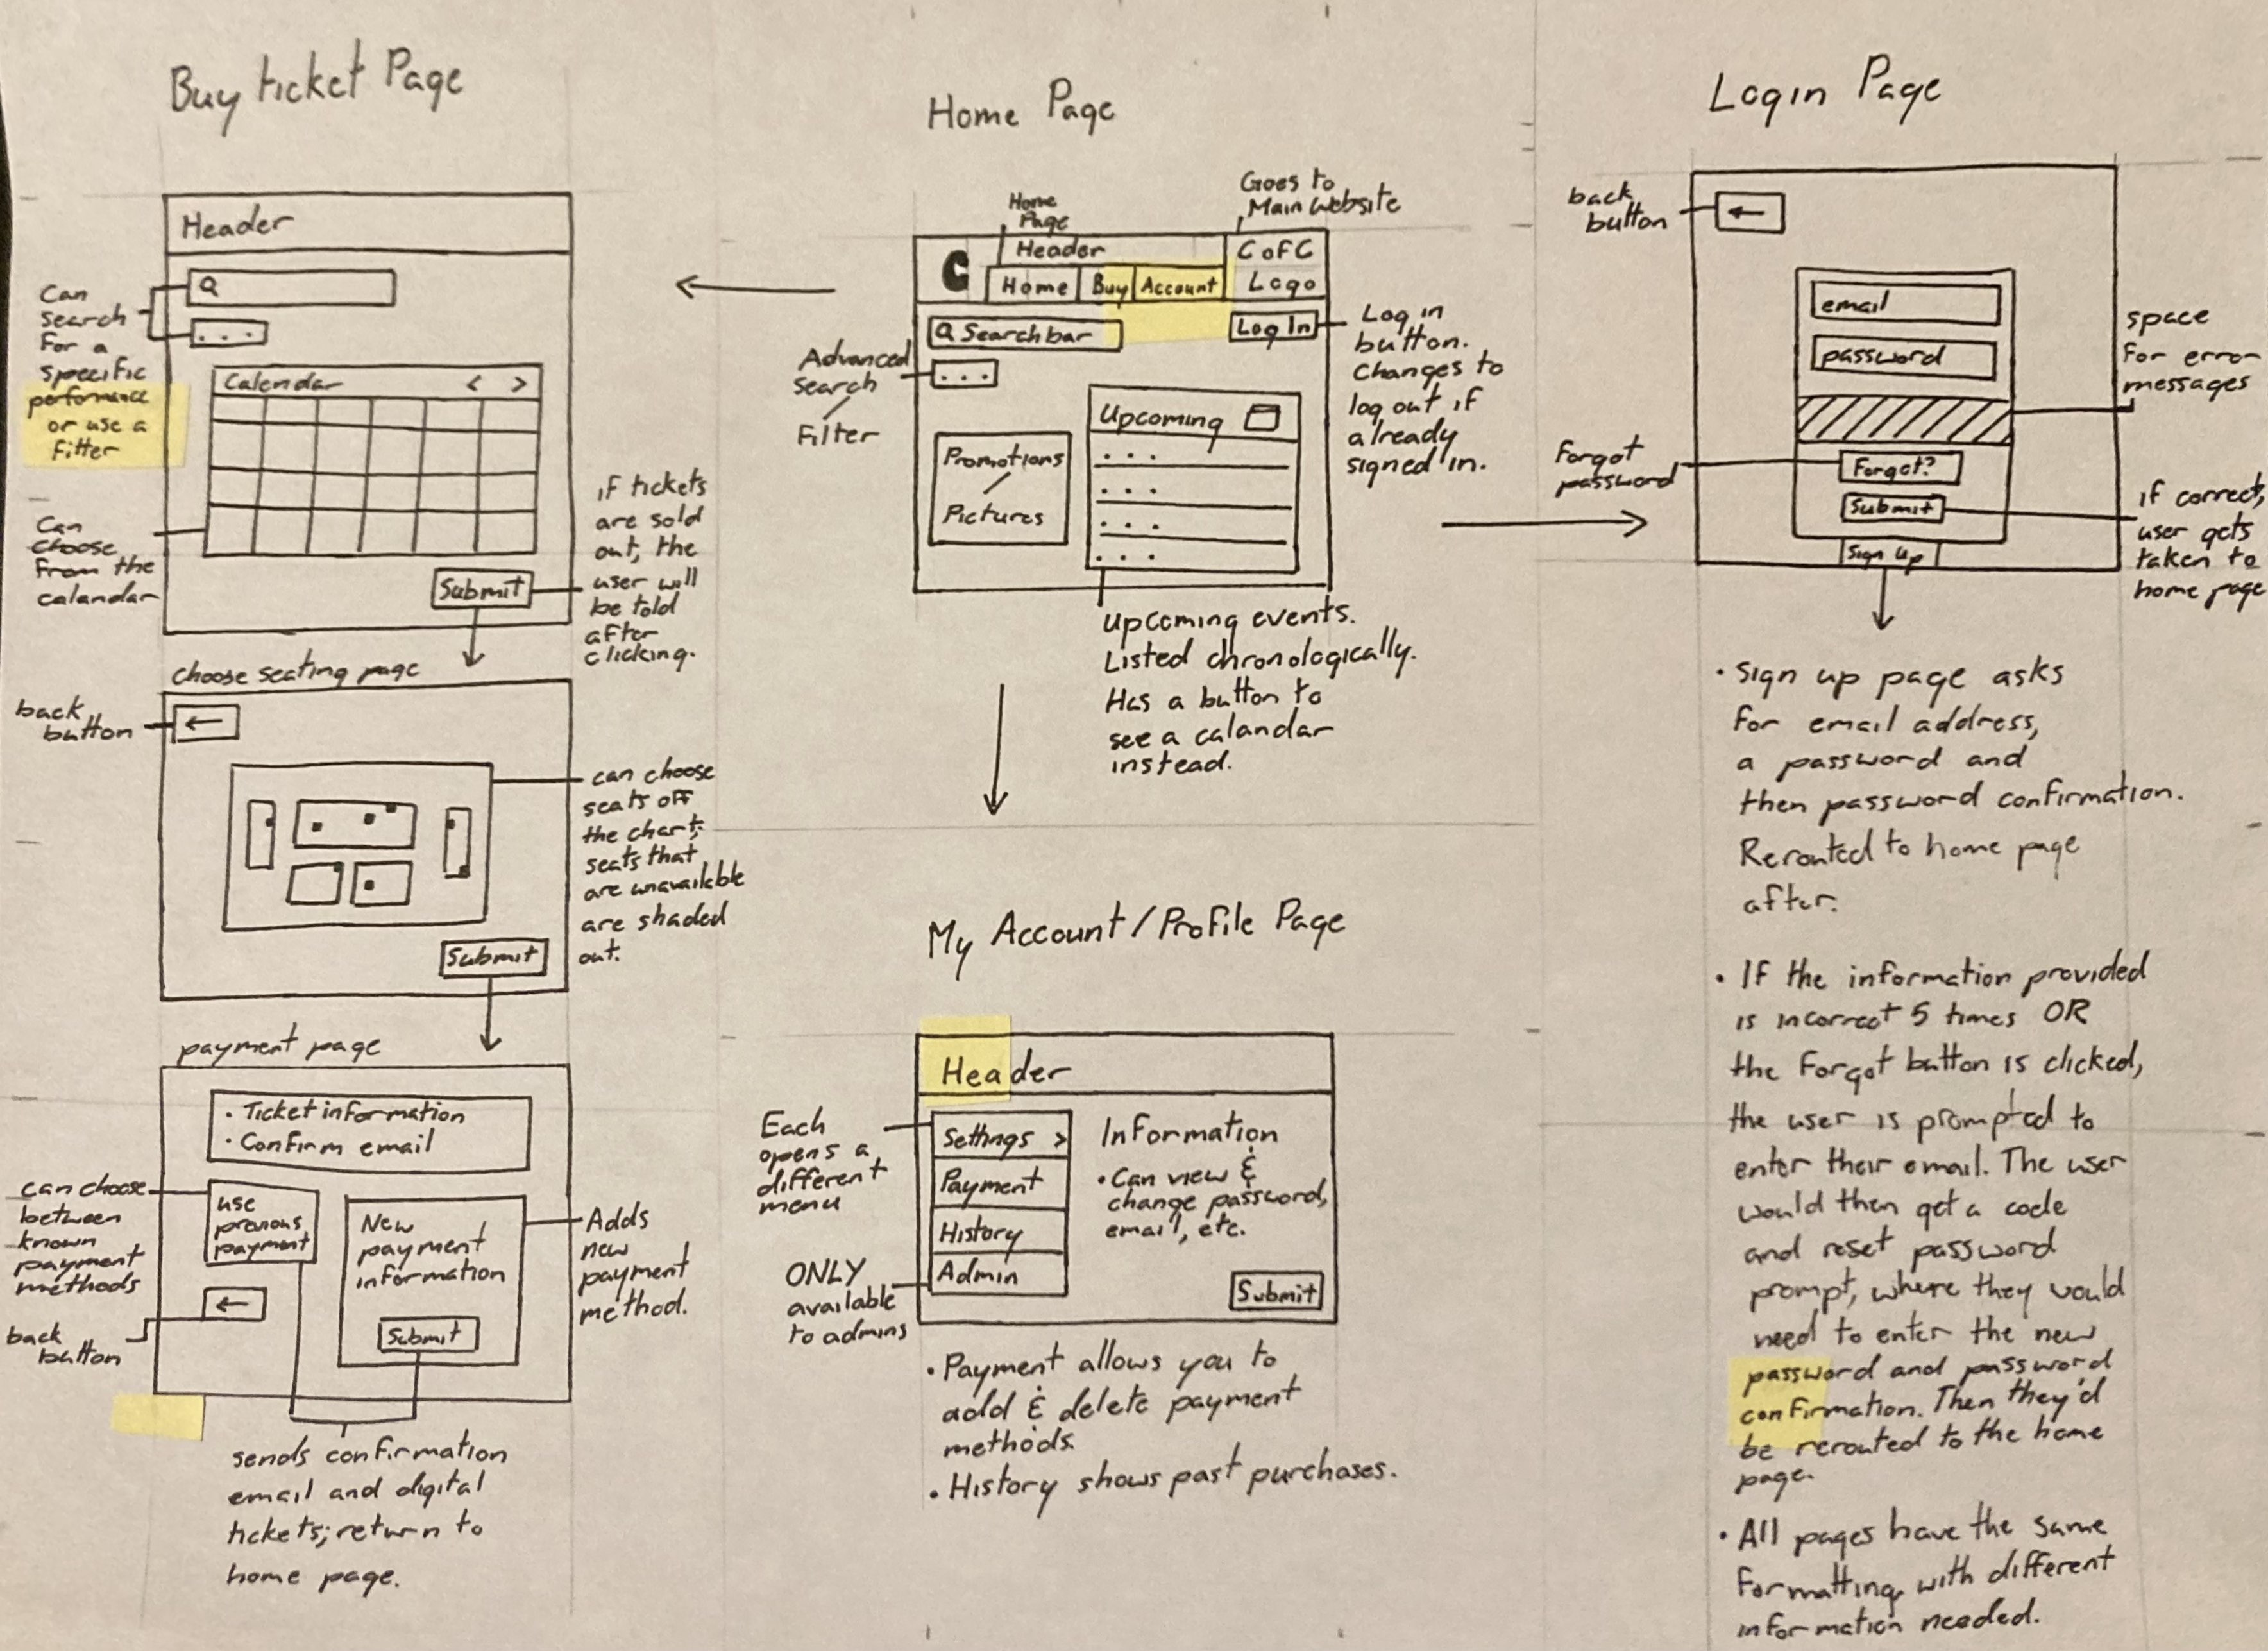 Buy ticket Page
Header
Can
search
For a
specific
performance
or use a
Filter
. . .
Calendar < >
Can
choose
from the
calandar
Submit
if tickets
are sold
out, the
user will
be told
after
clicking.
choose seating page
back
button
←
can choose
seats off
the chart;
seats that
are unavailable
are shaded
out.
Submit
payment page
• Ticket information
• Confirm email
can choose
between
known
payment
methods
use
previous
payment
New
payment
information
Submit
Adds
new
payment
method.
←
back
button
sends confirmation
email and digital
tickets; return to
home page.
Home Page
Home
Page
Goes to
Main website
C
Header
Home Buy Account
CofC
Logo
Search bar
Log In
Log in
button.
Changes to
log out if
already
signed in.
Advanced
search
/
Filter
. . .
Promotions
/
Pictures
Upcoming
. . .
. . .
. . .
. . .
Upcoming events.
Listed chronologically.
Has a button to
see a calandar
instead.
My Account/Profile Page
Header
Each
opens a
different
menu
Settings >
Payment
History
Admin
ONLY
available
to admins
Information
• Can view &
change password,
email, etc.
Submit
• Payment allows you to
add & delete payment
methods.
• History shows past purchases.
Login Page
back
button
←
email
password
space
for error
messages
Forgot
password
Forgot?
Submit
Sign up
if correct,
user gets
taken to
home page
• Sign up page asks
for email address,
a password and
then password confirmation.
Rerouted to home page
after.
• If the information provided
is incorrect 5 times OR
the Forgot button is clicked,
the user is prompted to
enter their email. The user
would then get a code
and reset password
prompt, where they would
need to enter the new
password and password
confirmation. Then they'd
be rerouted to the home
page.
• All pages have the same
formatting with different
information needed.